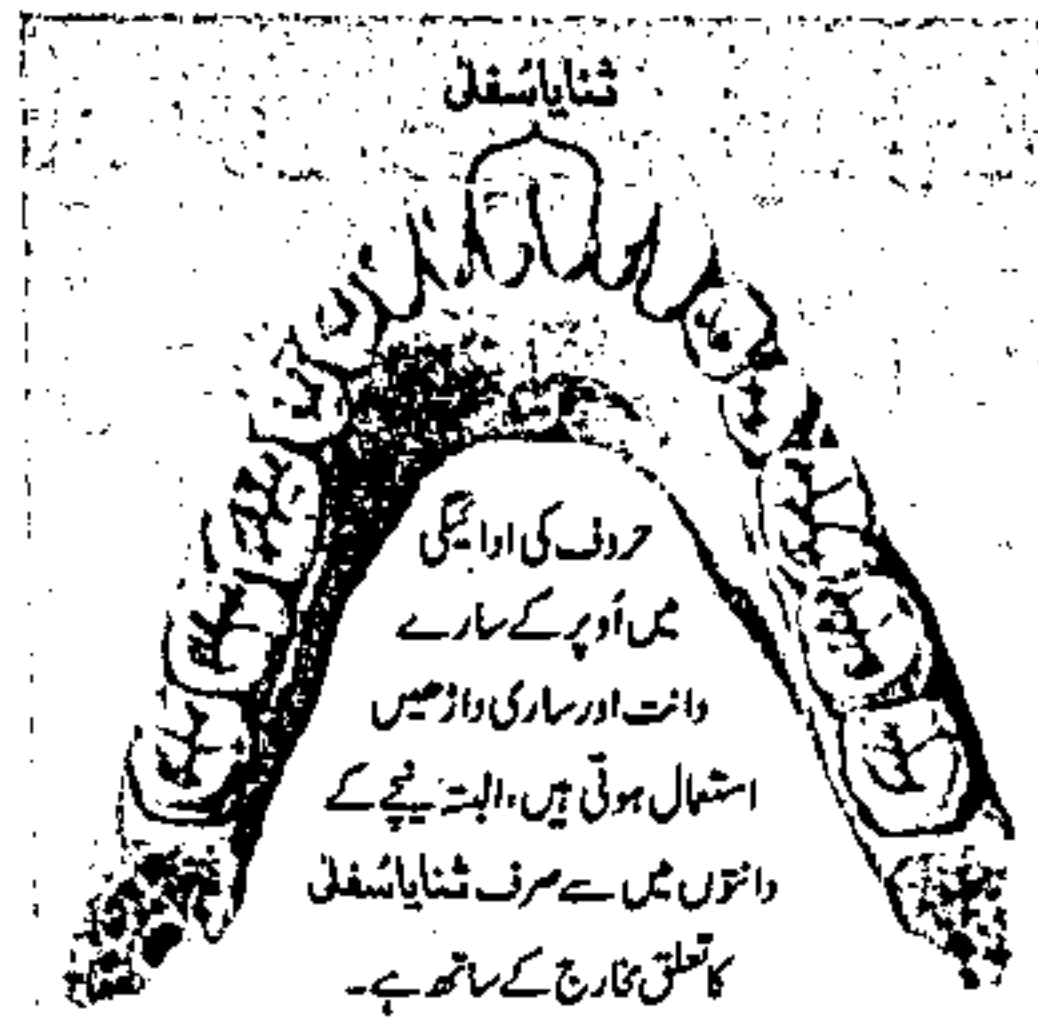 ثنایا سُفلیٰ
حروف کی ادائیگی
میں اُوپر کے سارے
دانت اور ساری داڑھیں
استعمال ہوتی ہیں، البتہ نیچے کے
دانتوں میں سے صرف ثنایا سُفلیٰ
کا تعلق مخارج کے ساتھ ہے۔